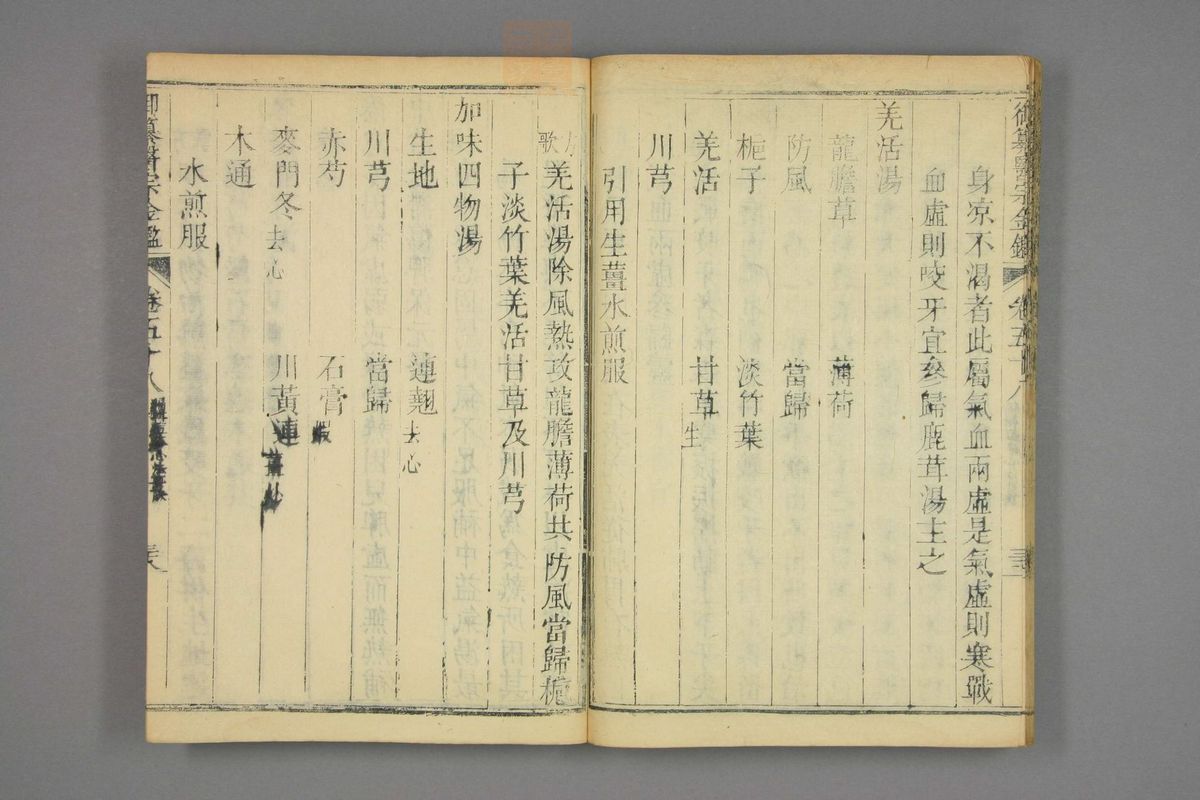 御纂醫宗金鑑 卷五十八
身凉不渴者此屬氣血兩虛是氣虛則寒戰
血虛則咬牙宜參歸鹿茸湯主之
羌活湯
龍膽草 薄荷
防風 當歸
梔子 淡竹葉
羌活 甘草生
川芎
引用生薑水煎服
方歌 羌活湯除風熱攻龍膽薄荷共防風當歸梔
子淡竹葉羌活甘草及川芎
加味四物湯
生地 連翹去心
川芎 當歸
赤芍 石膏煆
麥門冬去心 川黃連薑炒
木通
水煎服
御纂醫宗金鑑 卷五十八